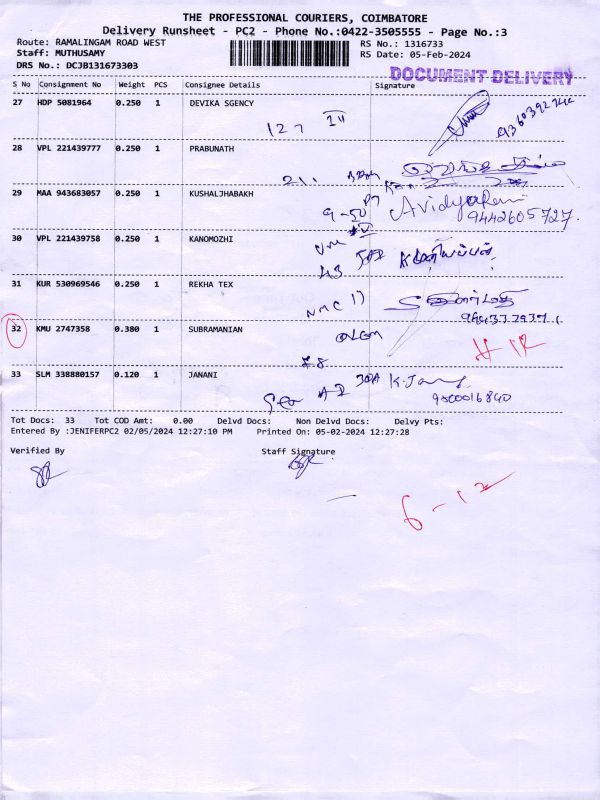 THE PROFESSIONAL COURIERS, COIMBATORE
Delivery Runsheet - PC2 - Phone No.:0422-3505555 - Page No.:3
Route: RAMALINGAM ROAD WEST RS No.: 1316733
Staff: MUTHUSAMY RS Date: 05-Feb-2024
DRS No.: DCJB131673303
DOCUMENT DELIVERY
S No Consignment No Weight PCS Consignee Details Signature
27 HDP 5081964 0.250 1 DEVIKA SGENCY
127
28 VPL 221439777 0.250 1 PRABUNATH
21.
29 MAA 943683057 0.250 1 KUSHALJHABAKH
9-50 A Vidya
9442605727.
30 VPL 221439758 0.250 1 KANOMOZHI
43
31 KUR 530969546 0.250 1 REKHA TEX
32 KMU 2747358 0.380 1 SUBRAMANIAN
33 SLM 338880157 0.120 1 JANANI
9500016840
Tot Docs: 33 Tot COD Amt: 0.00 Delvd Docs: Non Delvd Docs: Delvy Pts:
Entered By :JENIFERPC2 02/05/2024 12:27:10 PM Printed On: 05-02-2024 12:27:28
Verified By Staff Signature
6-12